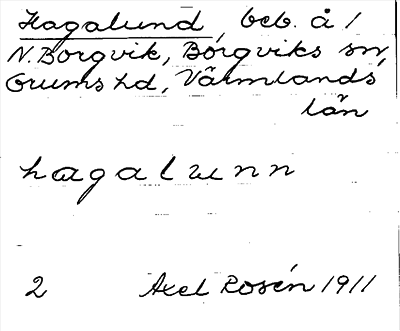 Hagalund, beb. å /
N. Borgvik, Borgviks sn,
Grums hd, Värmlands
län
hagalunn
2 Axel Rosén 1911